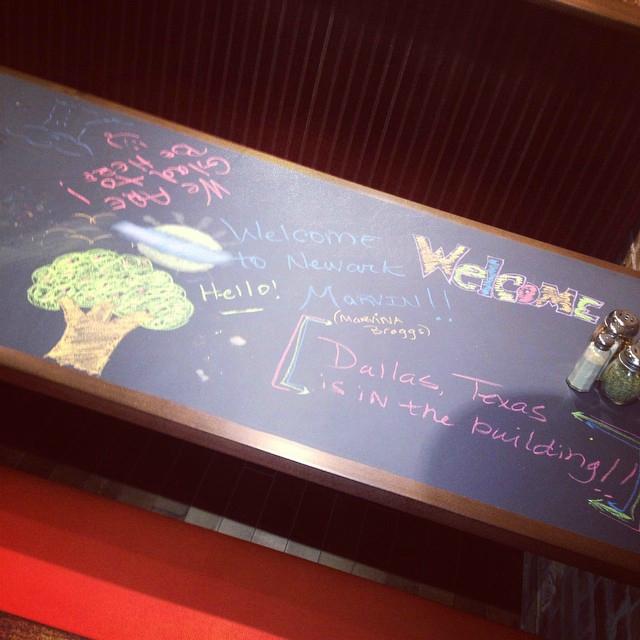 Welcome
to Newark
MARVIN!!
(MARVINA
Braggs)
WelCOME
Hello!
Dallas, Texas
is iN the building!!
We ARE